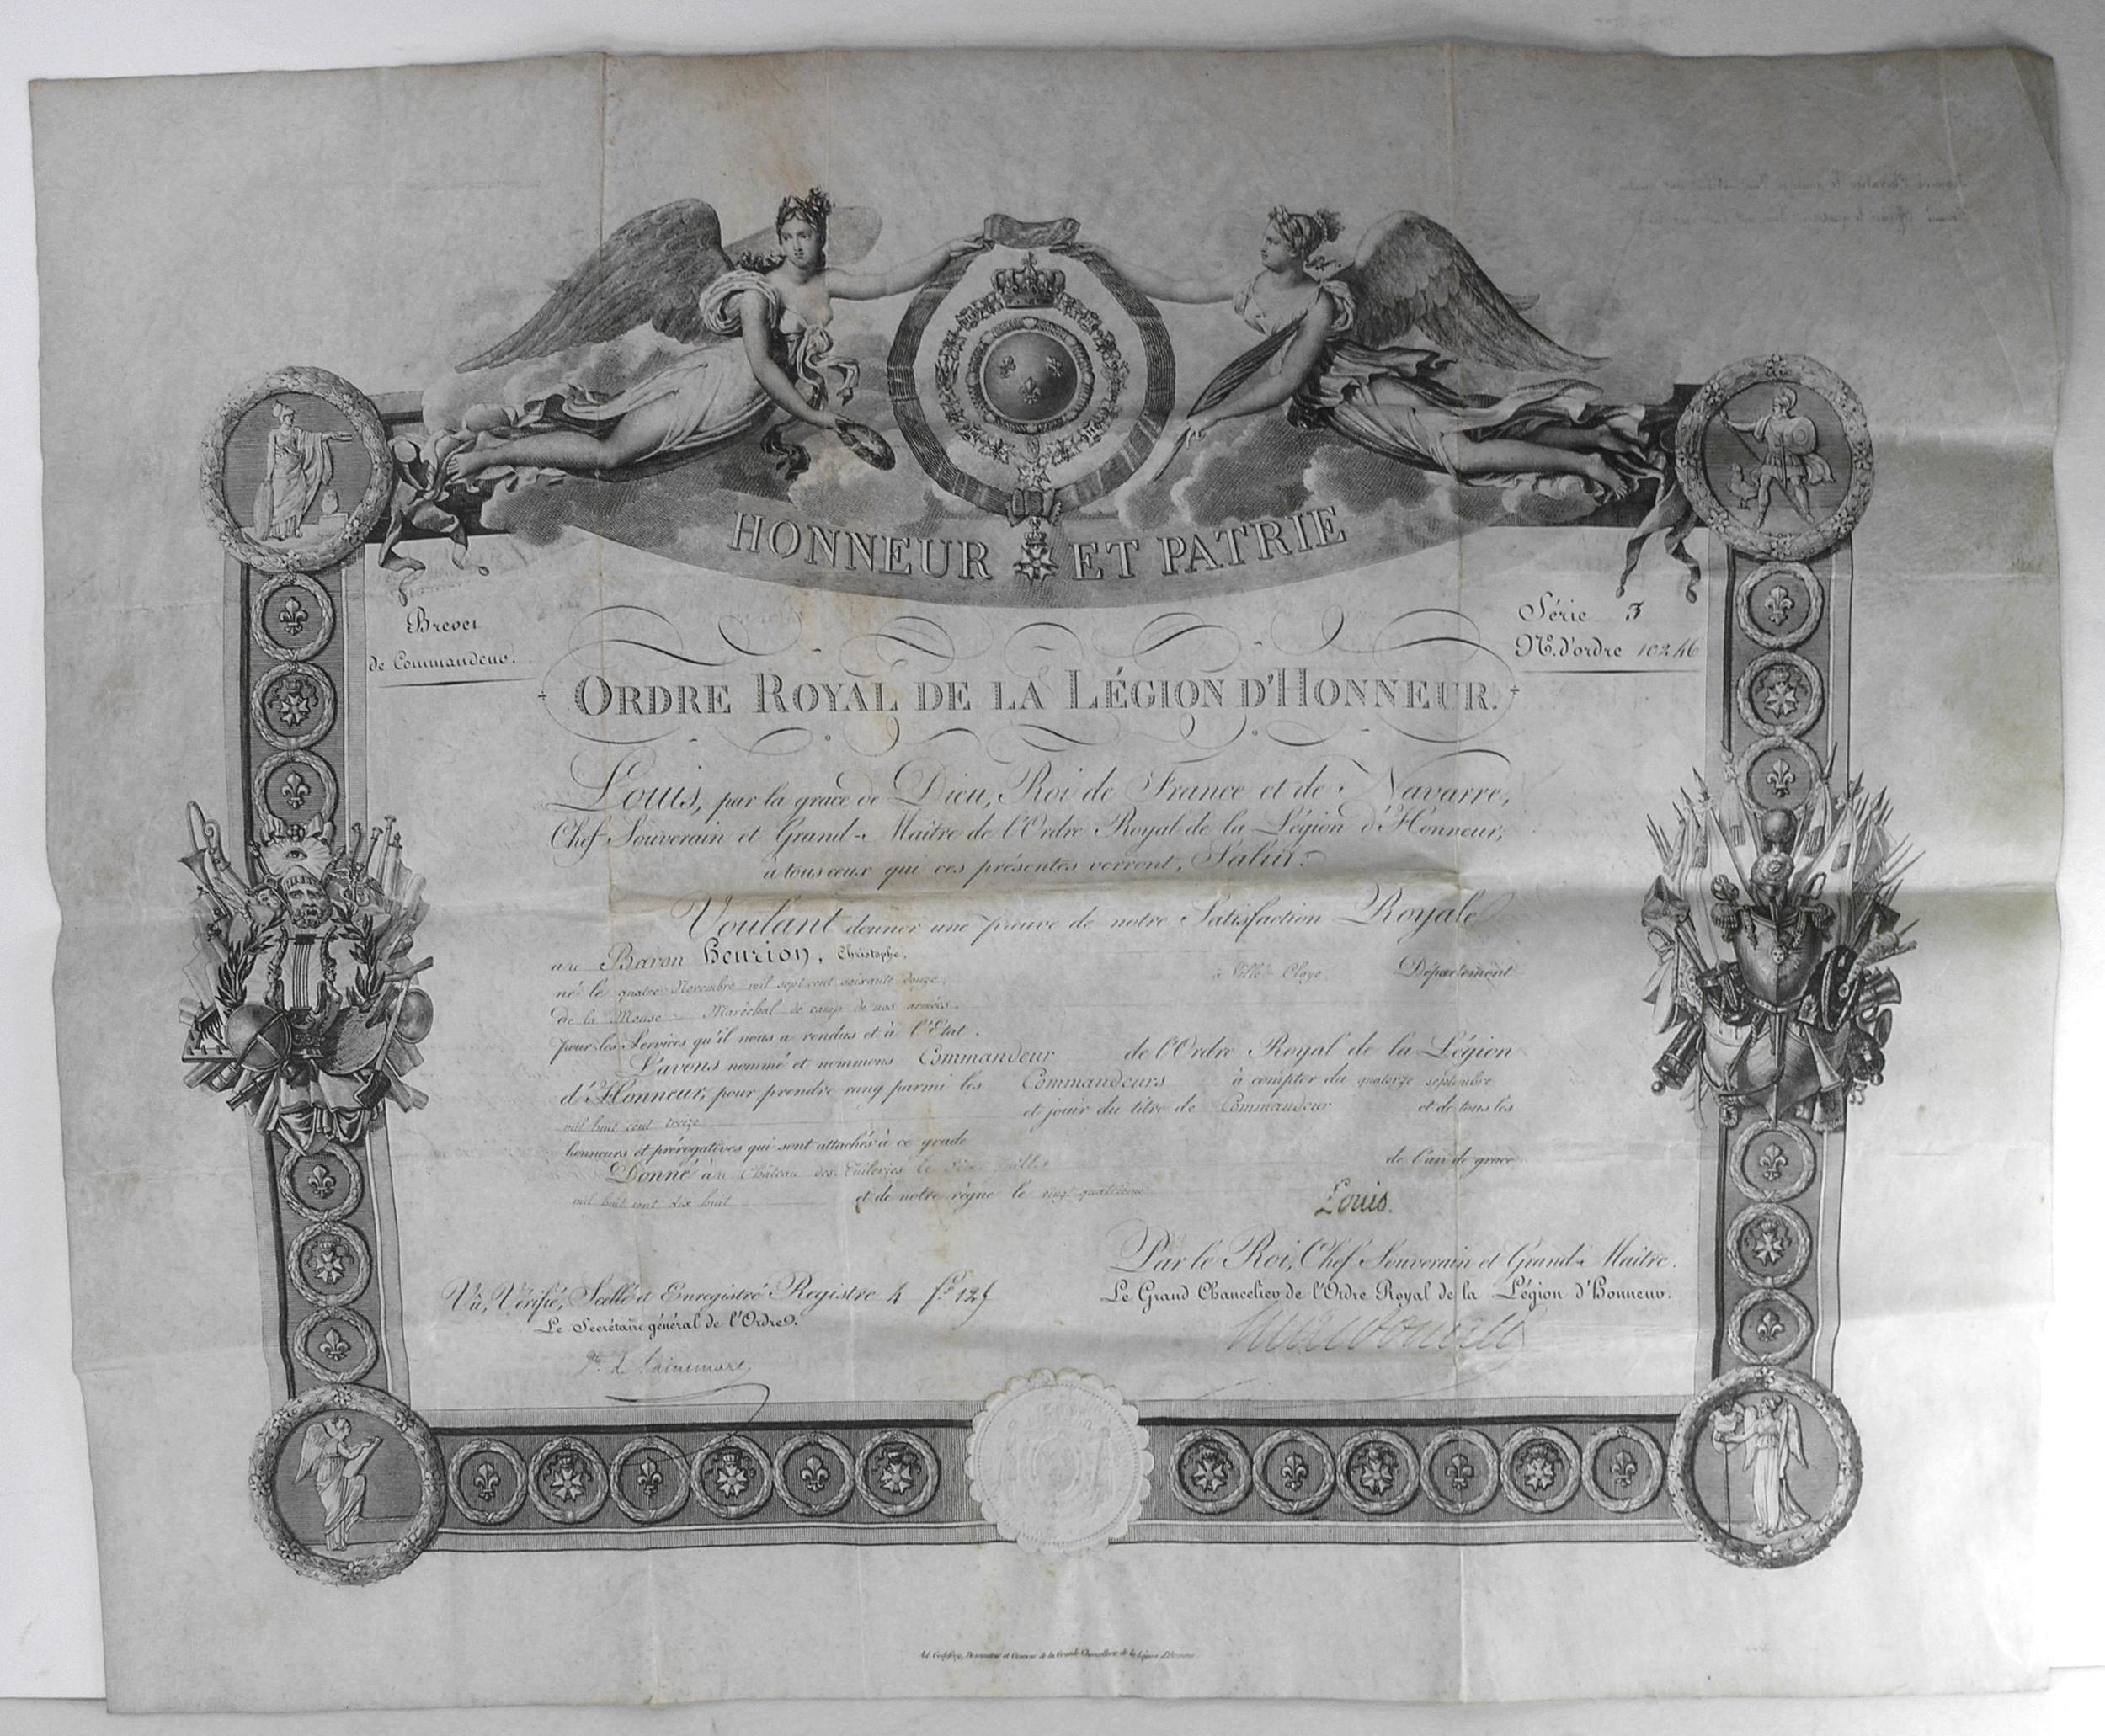 HONNEUR ET PATRIE
Brevet
de Commandeur.
Série 3
No. d'ordre 10246
ORDRE ROYAL DE LA LÉGION D'HONNEUR.
Louis, par la grace de Dieu, Roi de France et de Navarre,
Chef Souverain et Grand-Maître de l'Ordre Royal de la Légion d'Honneur,
à tous ceux qui ces présentes verront, Salut.
Voulant donner une preuve de notre Satisfaction Royale
au Baron Henrion, Christophe,
né le quatre Novembre mil sept cent soixante douze à Ville Cloye Département
de la Meuse Maréchal de camp de nos armées.
pour les Services qu'il nous a rendus et à l'Etat.
L'avons nommé et nommons Commandeur de l'Ordre Royal de la Légion
d'Honneur, pour prendre rang parmi les Commandeurs à compter du quatorze septembre
mil huit cent treize et jouir du titre de Commandeur et de tous les
honneurs et prérogatives qui sont attachés à ce grade
Donné au Château des Tuileries le de l'an de grace
mil huit cent dix huit et de notre règne le vingt quatrième
Louis.
Par le Roi, Chef Souverain et Grand-Maître.
Le Grand Chancelier de l'Ordre Royal de la Légion d'Honneur.
Vu, Vérifié, Scellé et Enregistré Registre 4 fo 125
Le Secrétaire général de l'Ordre.
Ad. Godefroy, Dessinateur et Graveur de la Grande Chancellerie de la Légion d'Honneur